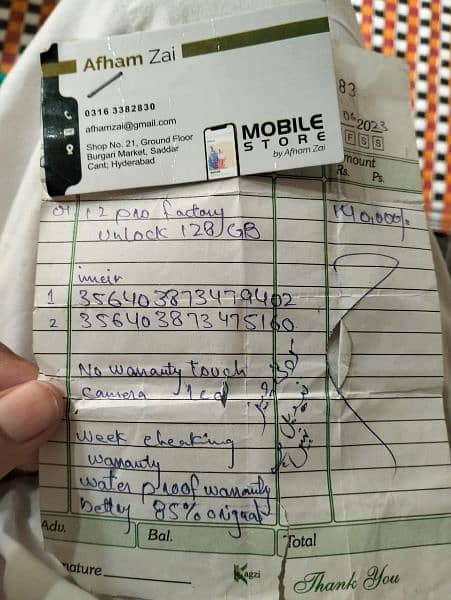 Afham Zai
0316 3382830
afhamzai@gmail.com
Shop No. 21, Ground Floor
Burgan Market, Saddar
Cant, Hyderabad
MOBILE
STORE
by Afham Zai
83
06 2023
F S S
mount
Rs. Ps.
01 12 pro factory 140,000/-
unlock 128 GB
imeir
1 356403873479402
2 356403873475160
No warranty touch
camera lcd
week cheaking
warranty
water proof warranty
bettry 85% orignal
Adv.
Bal.
Total
nature
Kagzi
Thank You